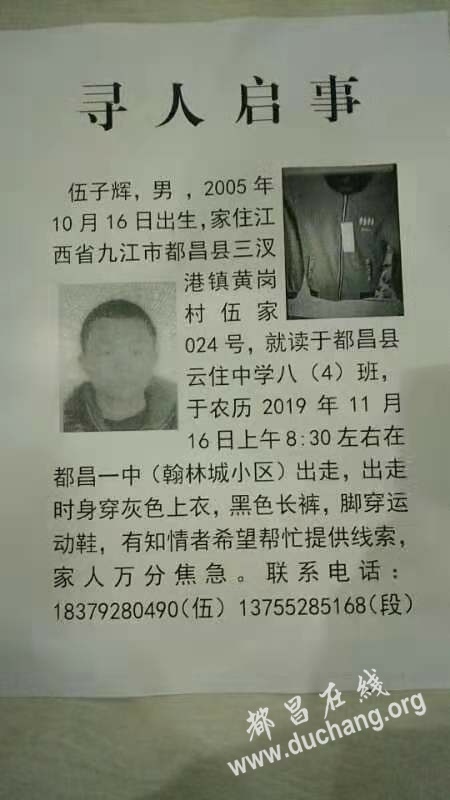 寻人启事
伍子辉，男，2005年
10月16日出生，家住江
西省九江市都昌县三汊
港镇黄岗
村伍家
024号，就读于都昌县
云住中学八（4）班，
于农历2019年11月
16日上午8:30左右在
都昌一中（翰林城小区）出走，出走
时身穿灰色上衣，黑色长裤，脚穿运
动鞋，有知情者希望帮忙提供线索，
家人万分焦急。联系电话：
18379280490(伍) 13755285168(段)
都昌在线
www.duchang.org